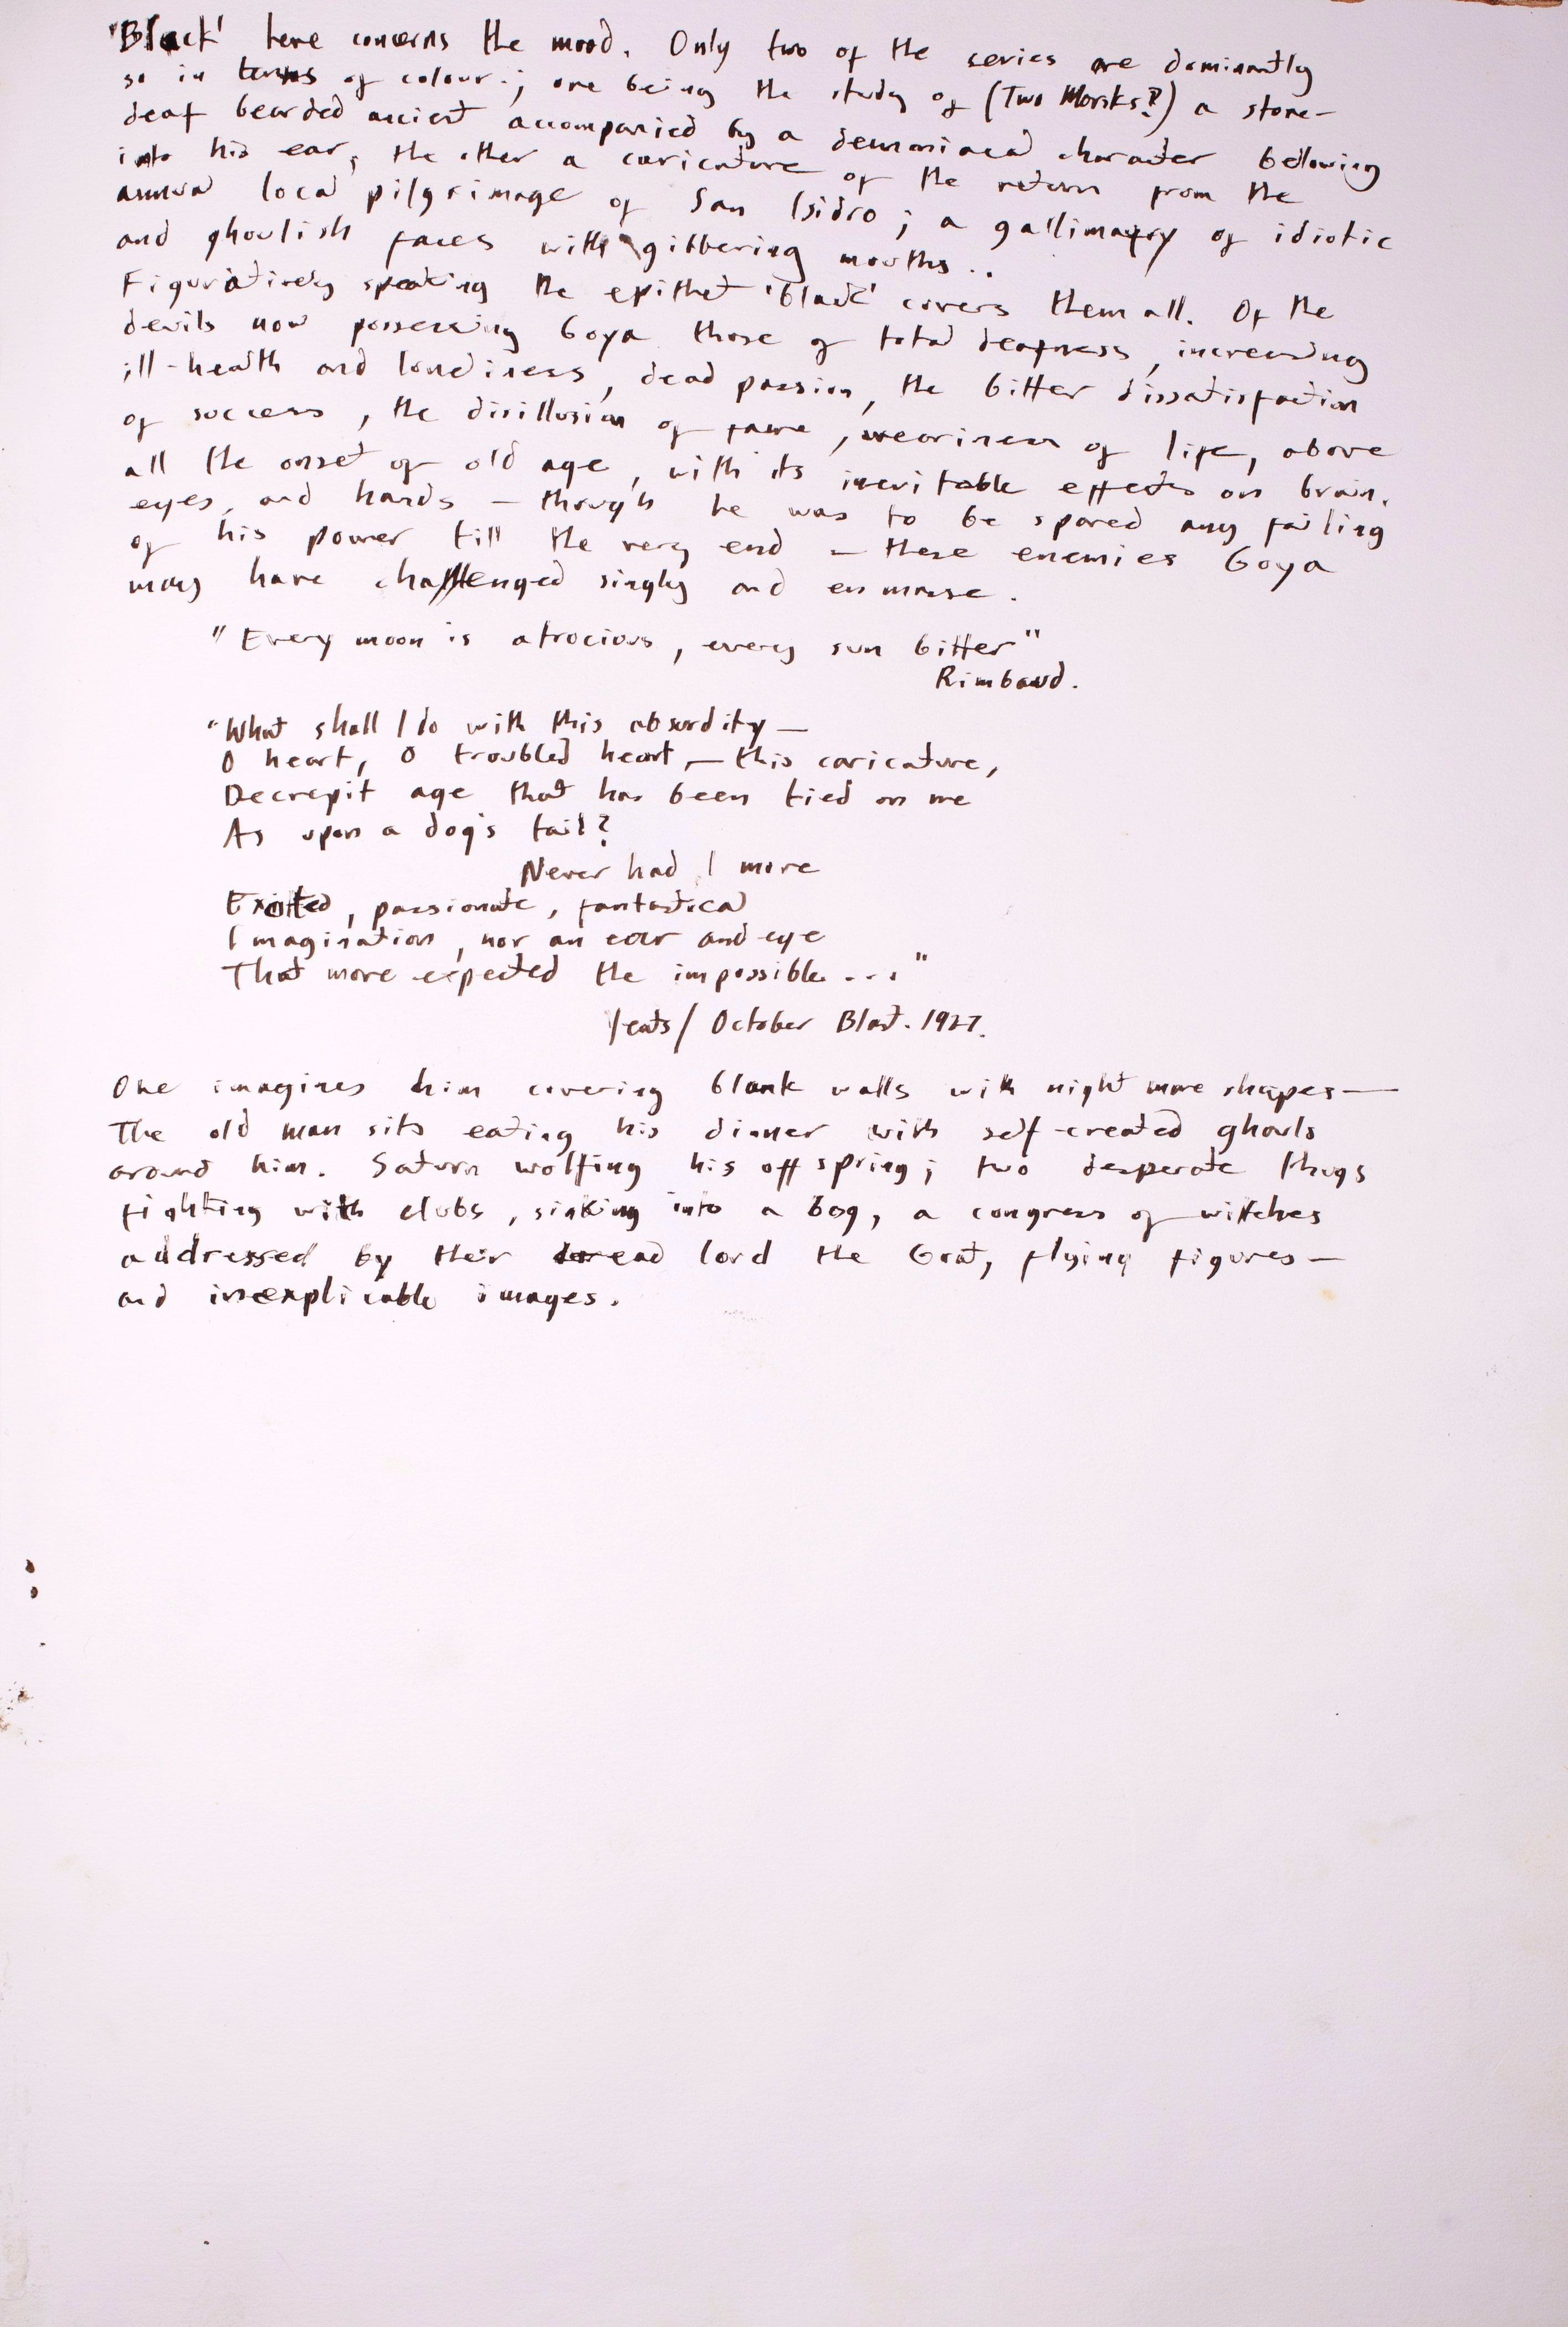 'Black' here concerns the mood. Only two of the series are dominantly
so in terms of colour.; one being the study of (Two Monks?) a stone-
deaf bearded ancient accompanied by a demoniacal character bellowing
into his ear, the other a caricature of the return from the
annual local pilgrimage of San Isidro; a gallimaufry of idiotic
and ghoulish faces with gibbering mouths..
Figuratively speaking the epithet 'black' covers them all. Of the
devils now possessing Goya those of total deafness, increasing
ill-health and loneliness, dead passion, the bitter dissatisfaction
of success, the disillusion of fame, weariness of life, above
all the onset of old age, with its inevitable effects on brain,
eyes, and hands - though he was to be spared any failing
of his power till the very end - these enemies Goya
may have challenged singly and en masse.
"Every moon is atrocious, every sun bitter"
Rimbaud.
"What shall I do with this absurdity —
O heart, O troubled heart, — this caricature,
Decrepit age that has been tied on me
As upon a dog's tail?
Never had I more
Excited, passionate, fantastical
Imagination, nor an ear and eye
That more expected the impossible...."
Yeats/ October Blast. 1927.
One imagines him covering blank walls with night mare shapes—
The old man sits eating his dinner with self-created ghouls
around him. Saturn wolfing his offspring; two desperate thugs
fighting with clubs, sinking into a bog, a congress of witches
addressed by their dread lord the Goat, flying figures—
and inexplicable images.